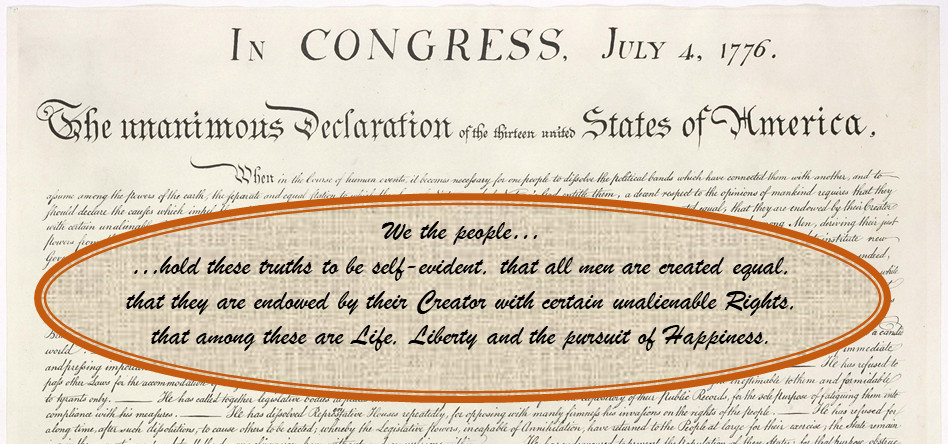 IN CONGRESS, JULY 4, 1776.
The unanimous Declaration of the thirteen united States of America,
When in the Course of human events, it becomes necessary for one people to dissolve the political bands which have connected them with another, and to
assume among the powers of the earth, the separate and equal station to which the entitle them, a decent respect to the opinions of mankind requires that they
should declare the causes which impel equal, that they are endowed by their Creator
with certain unalienable among Men, deriving their just
powers from institute new
We the people...
...hold these truths to be self-evident, that all men are created equal,
that they are endowed by their Creator with certain unalienable Rights,
that among these are Life, Liberty and the pursuit of Happiness.
while
world. immediate
and pressing He has refused to
pass other Laws for the accommodation of inestimable to them and formidable
to tyrants only. He has called together legislative bodies of their Public Records, for the sole purpose of fatiguing them into
compliance with his measures. He has dissolved Representative Houses repeatedly, for opposing with manly firmness his invasions on the rights of the people. He has refused for
along time, after such dissolutions, to cause others to be elected; whereby the Legislative powers, incapable of Annihilation, have returned to the People at large for their exercise; the State remain